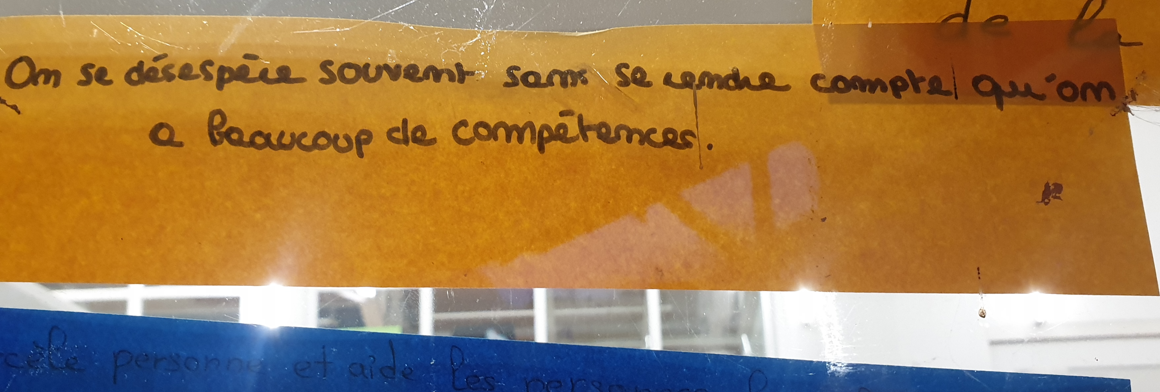 de la
On se désespère souvent sans se rendre compte qu'on
a beaucoup de compétences.
personne et aide les